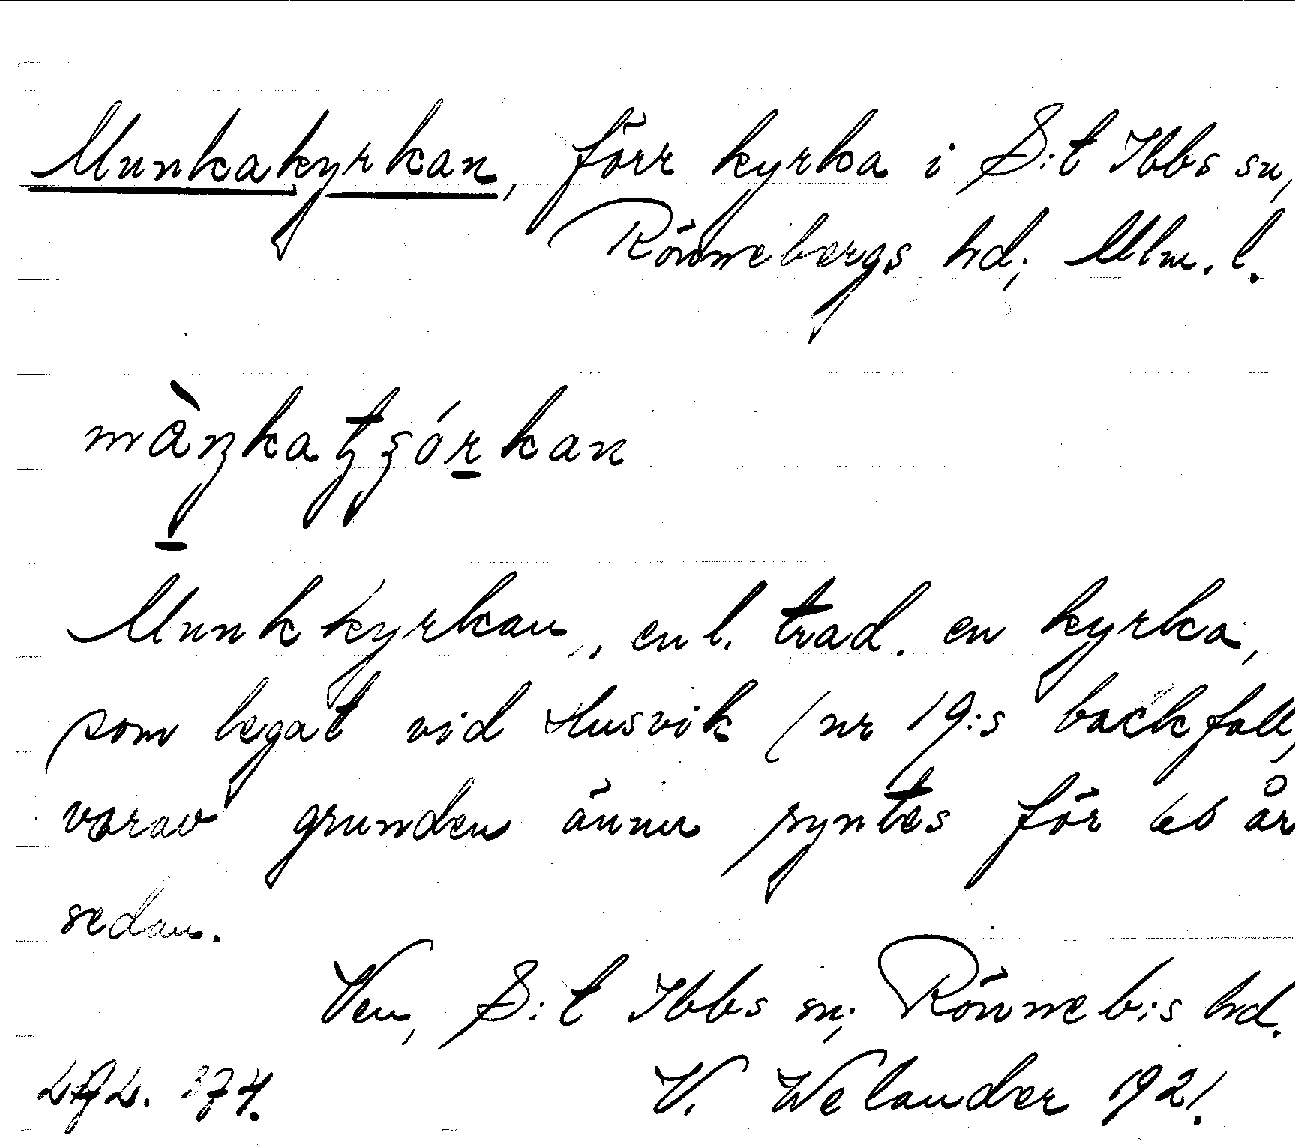 Munkakyrkan, förr kyrka i S:t Ibbs sn,
Rönnebergs hd, Mlm. l.
Munkkyrkan, enl. trad. en kyrka,
som legat vid Husvik (nr 19:s backfall,
varav grunden ännu syntes för 60 år
sedan.
Ven, S:t Ibbs sn, Rönneb:s hd.
374.
V. Welander 1921.